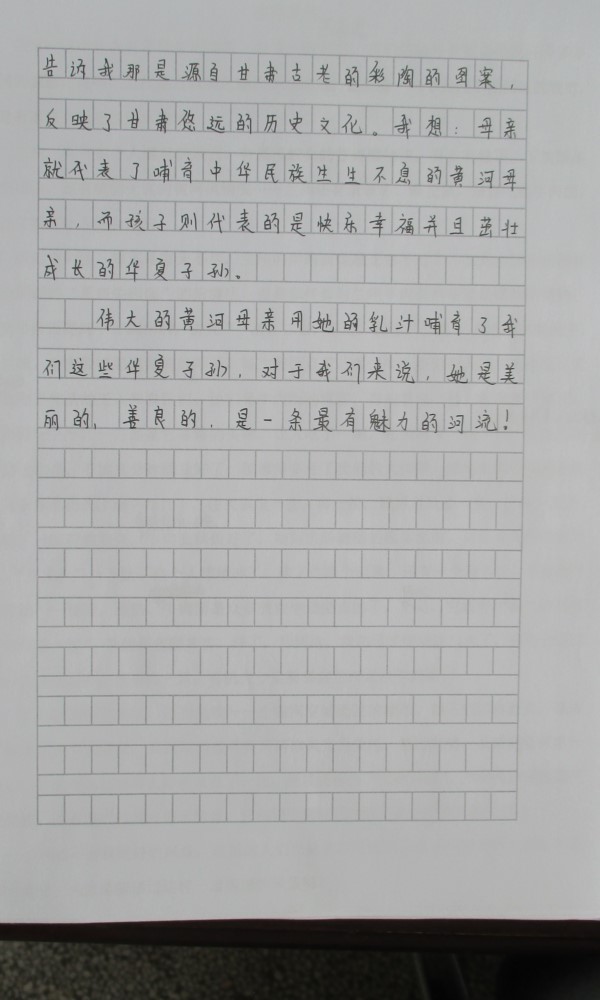 告诉我那是源自甘肃古老的彩陶的图案，
反映了甘肃悠远的历史文化。我想：母亲
就代表了哺育中华民族生生不息的黄河母
亲，而孩子则代表的是快乐幸福并且茁壮
成长的华夏子孙。
伟大的黄河母亲用她的乳汁哺育了我
们这些华夏子孙，对于我们来说，她是美
丽的，善良的，是一条最有魅力的河流！